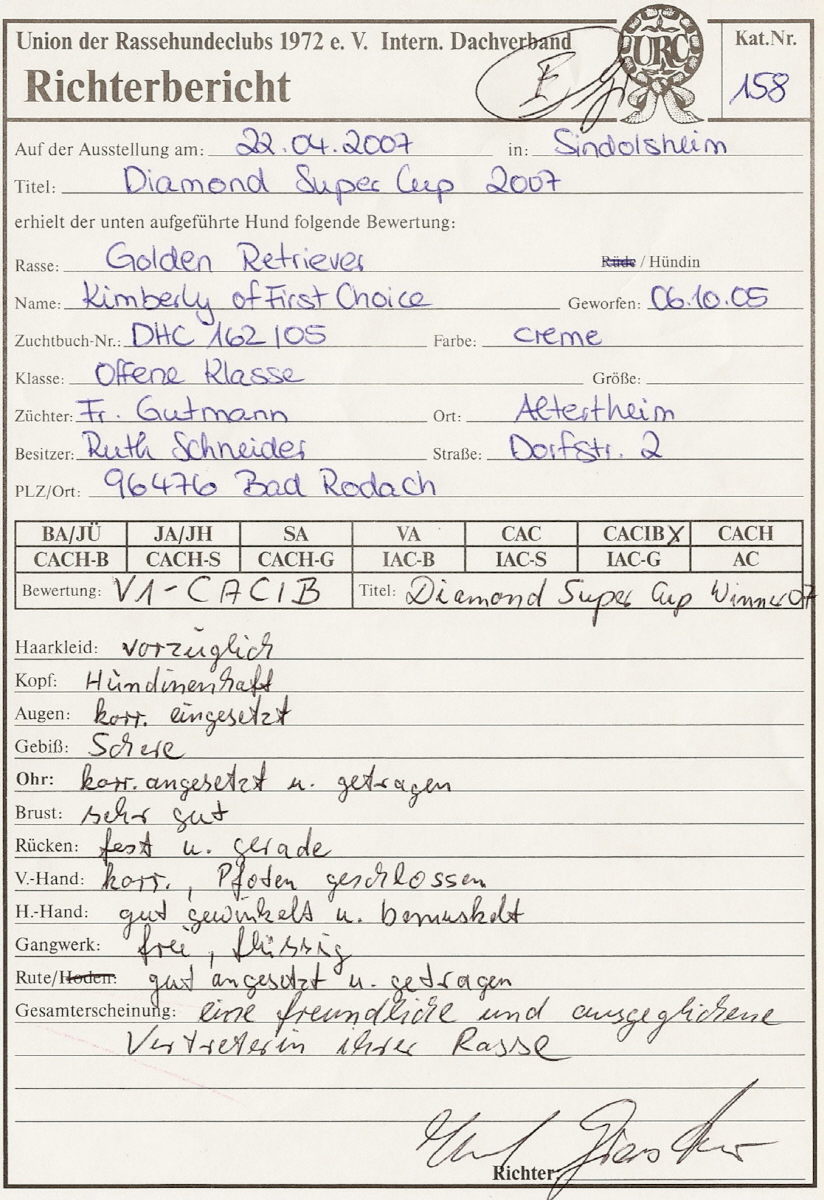 Union der Rassehundeclubs 1972 e. V. Intern. Dachverband
URC
Kat.Nr.
Richterbericht
158
Auf der Ausstellung am: 22.04.2007 in: Sindolsheim
Titel: Diamond Super Cup 2007
erhielt der unten aufgeführte Hund folgende Bewertung:
Rasse: Golden Retriever Rüde / Hündin
Name: Kimberly of First Choice Geworfen: 06.10.05
Zuchtbuch-Nr.: DHC 162/05 Farbe: creme
Klasse: Offene Klasse Größe:
Züchter: Fr. Gutmann Ort: Altertheim
Besitzer: Ruth Schneider Straße: Dorfstr. 2
PLZ/Ort: 96476 Bad Rodach
BA/JÜ JA/JH SA VA CAC CACIB X CACH
CACH-B CACH-S CACH-G IAC-B IAC-S IAC-G AC
Bewertung: V1-CACIB Titel: Diamond Super Cup Winner 07
Haarkleid: vorzüglich
Kopf: Hündinenhaft
Augen: korr. eingesetzt
Gebiß: Schere
Ohr: korr. angesetzt u. getragen
Brust: sehr gut
Rücken: fest u. gerade
V.-Hand: korr., Pfoten geschlossen
H.-Hand: gut gewinkelt u. bemuskelt
Gangwerk: frei, flüssig
Rute/Hoden: gut angesetzt u. getragen
Gesamterscheinung: eine freundliche und ausgeglichene
Vertreterin ihrer Rasse
Richter: